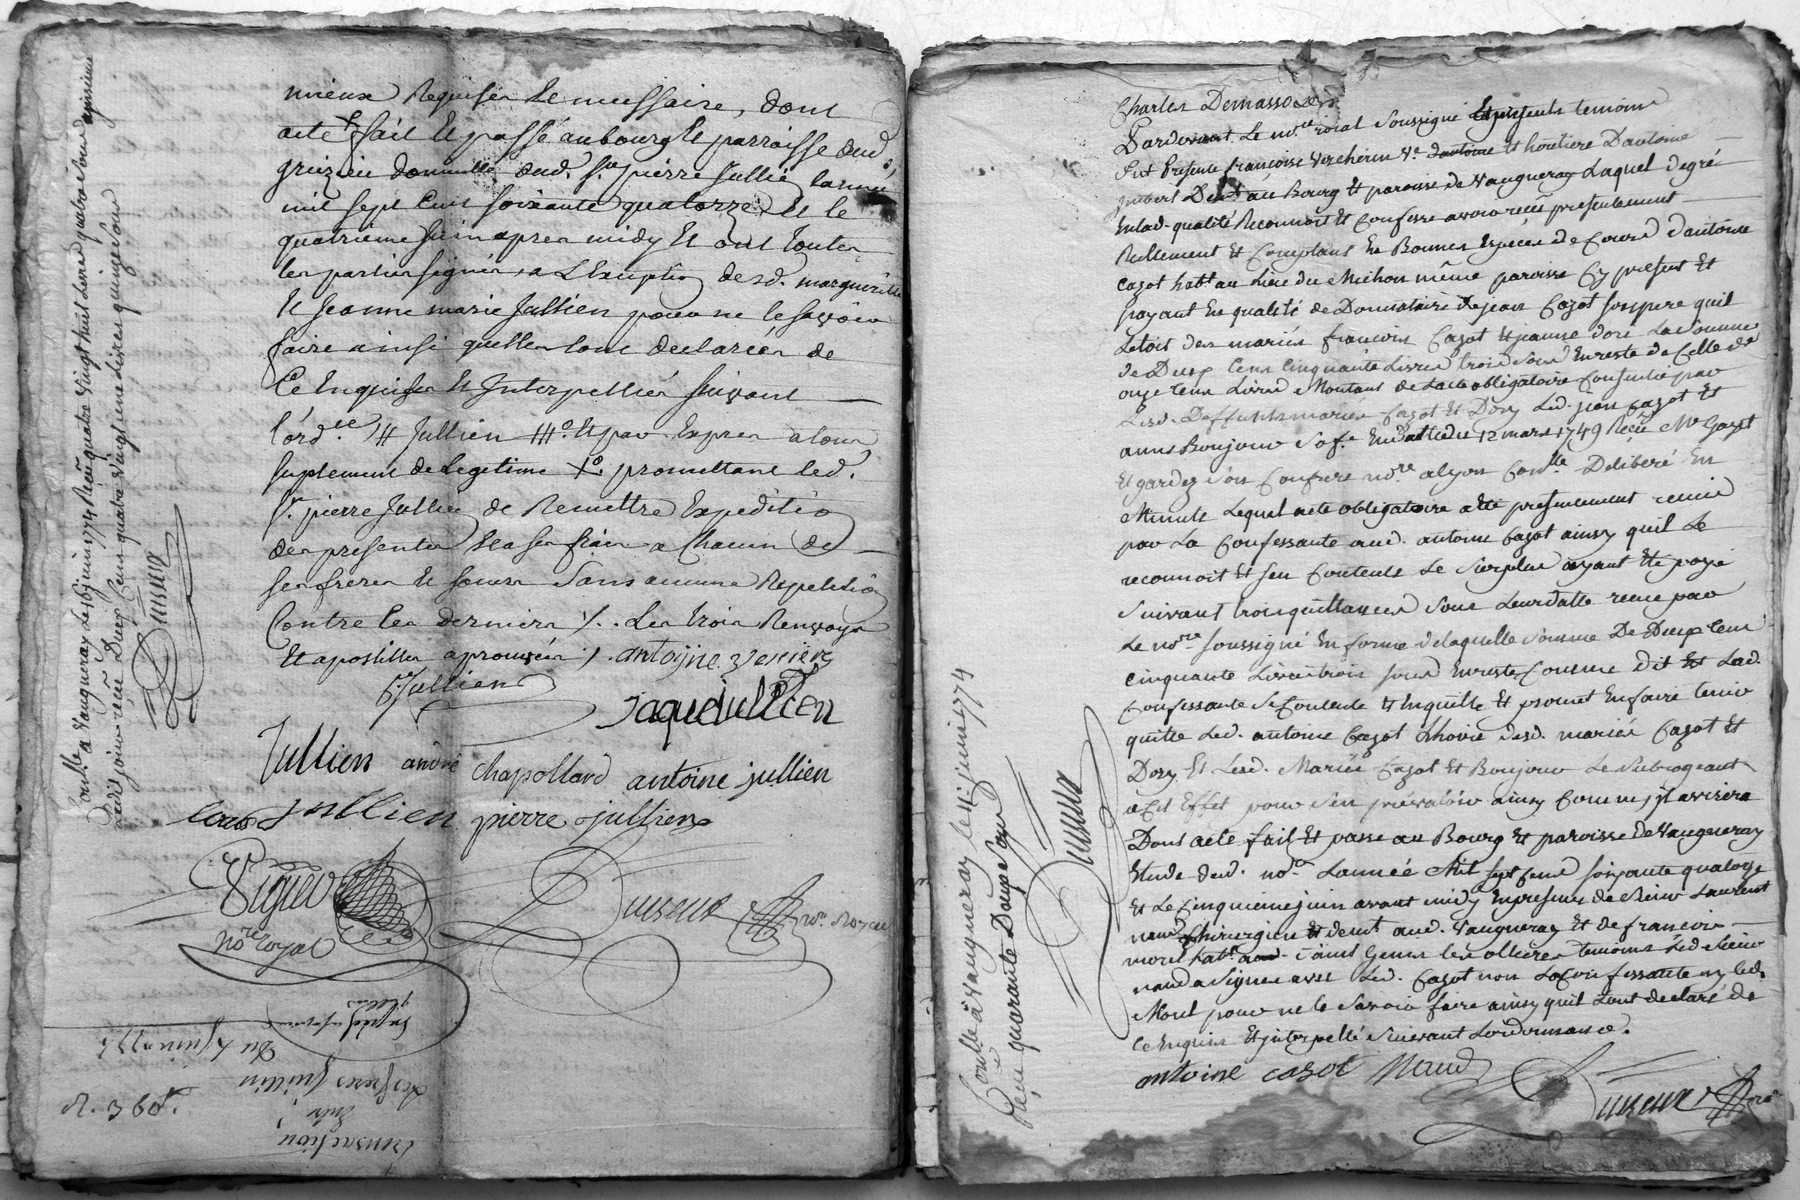 mieux Requiser le nessaire, dont
acte fait Et passé au bourg Et parroisse dud.
grizieu domicille dud. Sr. pierre Jullien lannée
mil sept Cens soixante quatorze Et le
quatrieme Juin apres midy Et ont toutes
les parties signés, a L'Exception desd. marguerite
Et Jeanne marie Jullien pour ne le sçavoir
faire ainsi quelles l'ont declarées de
Ce Enquises Et Interpellées suivant
l'ord.ce // Jullien Et par Exprès a leur
suplement de Legitime Xo. promettant led.
Sr. pierre Jullien de Remettre Expedition
des presentes a ses frais a Chacun de
ses freres Et soeurs Sans aucune Repetition
Contre les derniers /. Les trois Renvoys
Et apostilles aprouvées /. antoine
Jullien
Jaque Jullien
Jullien andré chapollard antoine jullien
Louis Jullien pierre Jullien
Viguer
nore royal
nore Royal
Conllé a Vaugneray Le 16 juin 1774 Reçû quatre Vingt huit Livre quatre sous
Ledit jour reçû Deux Cent quatre Vingt une Livre quinze sous
transaction
Entre
Les freres Jullien
Du 4 Juin 1774
Charles Demasso
Pardevant Le nore roial Soussigné Et presents temoins
fut Presente françoise Vercherin Ve. dantoine Et heritiere Dantoine
jmbert Du Bourg Et paroisse de Vaugneray Laquel degré
Enlad. qualité Reconnoit Et Confesse avoir reçu presentement
Reellement Et Comptant En Bonnes Especes de Cours d'antoine
Cazot habt. au Lieu du Michon même paroisse Cy present Et
payant En qualité de Donnataire de jean Cazot son pere quil
Letoit des mariés françois Cazot Et pauine dory La Somme
de Deux Cens Cinquante Livres trois Sous En reste de Celle de
onze Cens Livres Montant de Lacte obligatoire Consentie par
Lesd. Deffunts mariés Cazot Et Dory Led. jean Cazot Et
anne Bonjour Sa fe. En datte du 12 mars 1749 Reçu Me Gazot
Et gardes Son Confrere nore. a lyon Conllé Deliberé En
Minute Lequel acte obligatoire a été presentement remis
par La Confessante aud. antoine Cazot ainsy quil Le
reconnoit Et Sen Contente Le Surplus ayant Eté payé
Suivant trois quittances Sous Leur datte recue par
Le nore Soussigné En forme de laquelle Somme De Deux Cens
Cinquante Livres trois Sous En reste Comme dit Est Lad.
Confessante Se Contente Et Enquitte Et promet En faire tenir
quitte Led. antoine Cazot Lhoirie desd. mariés Cazot Et
Dory Et Lesd. Mariés Cazot Et Bonjour Le Subrogeant
a Cet Effet pour S'en prevaloir ainsy Comme jl avisera
Dont acte fait Et passé au Bourg Et paroisse de Vaugneray
Etude dud. nore. Lannée Mil Sept Cens Soixante quatorze
Et Le Cinquieme juin avant midy En presence de Sieur Laurent
naud Chirurgien Et demt. aud. Vaugneray Et de françois
morel habt. a Saint Genis les ollieres temoins Led. Sieur
naud a Signé avec Led. Cazot non La Confessante ny led.
Morel pour ne le Savoir faire ainsy quil L'ont declaré de
Ce Enquis Et jnterpellé Suivant L'ordonnance.
antoine cazot Naud
Conllé à Vaugneray le 11 juin 1774
Reçu quarante Douze Sous